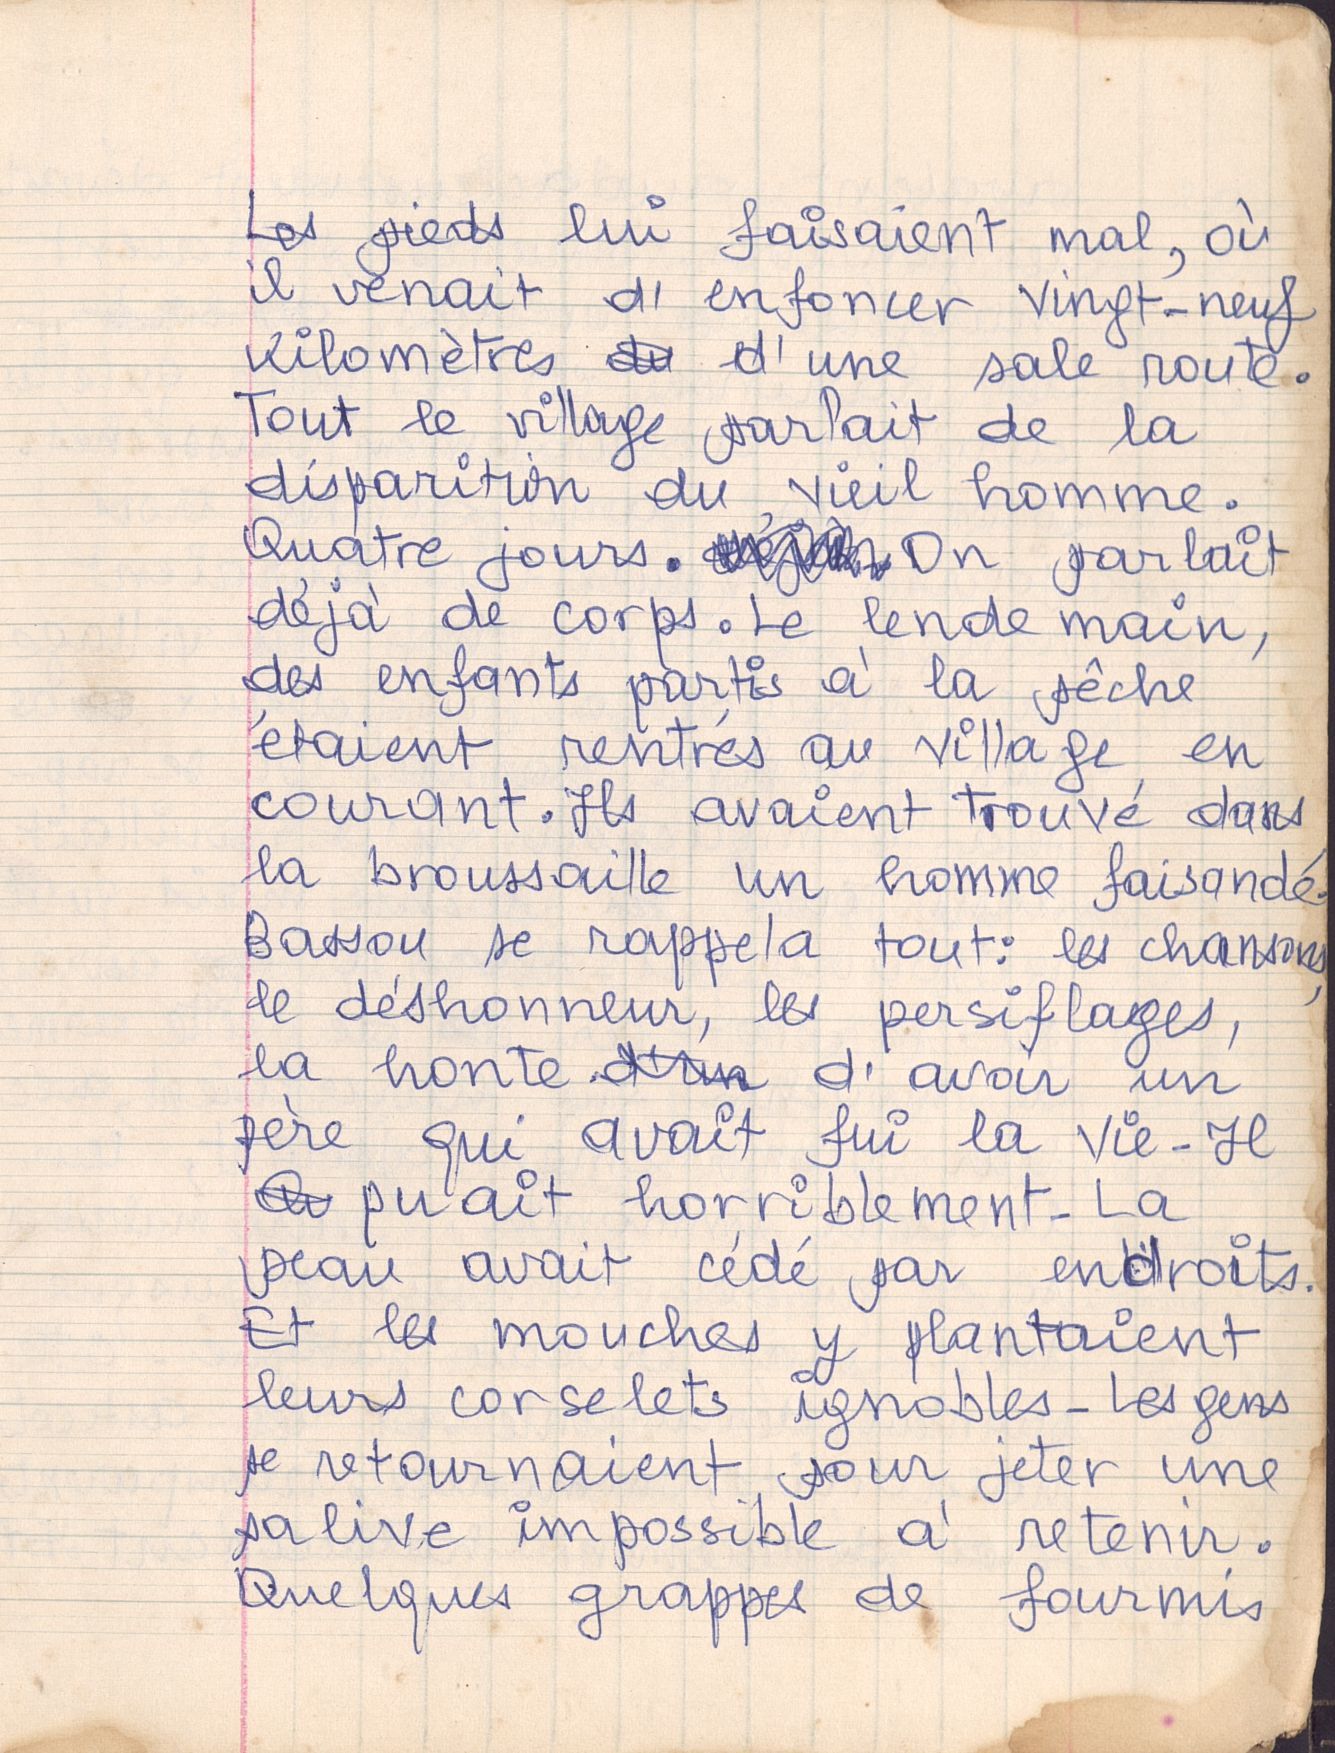 Les pieds lui faisaient mal, où
il venait d'enfoncer vingt-neuf
Kilomètres du d'une sale route.
Tout le village parlait de la
disparition du vieil homme.
Quatre jours. On parlait
déjà de corps. Le lendemain,
des enfants partis à la pêche
étaient rentrés au village en
courant. Ils avaient trouvé dans
la broussaille un homme faisandé.
Bassou se rappela tout: les chansons,
le déshonneur, les persiflages,
la honte d'un d'avoir un
père qui avait fui la vie - Il
puait horriblement - La
peau avait cédé par endroits.
Et les mouches y plantaient
leurs corselets ignobles - Les gens
se retournaient pour jeter une
salive impossible à retenir.
Quelques grappes de fourmis